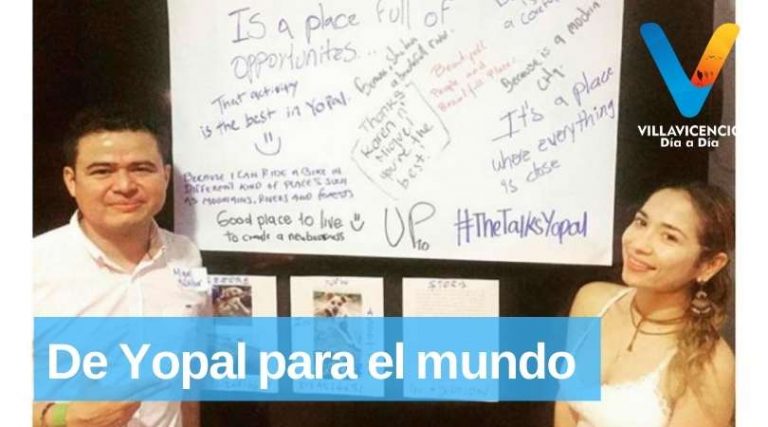 Is a place full of
opportunites...
That activity
is the best in Yopal.
Because I can ride a bike in
different kind of places such
as mountains, rivers and forests
Good place to live
to create a new business
Thanks
Karen n'
Miguel
you're the
best!
Beautifull
People and
Beautifull Place.
Because is a modern
city.
It's a place
where everything
is close
UP
to
#TheTalksYopal
BEFORE
NOW
STORY
VILLAVICENCIO
Día a Día
De Yopal para el mundo